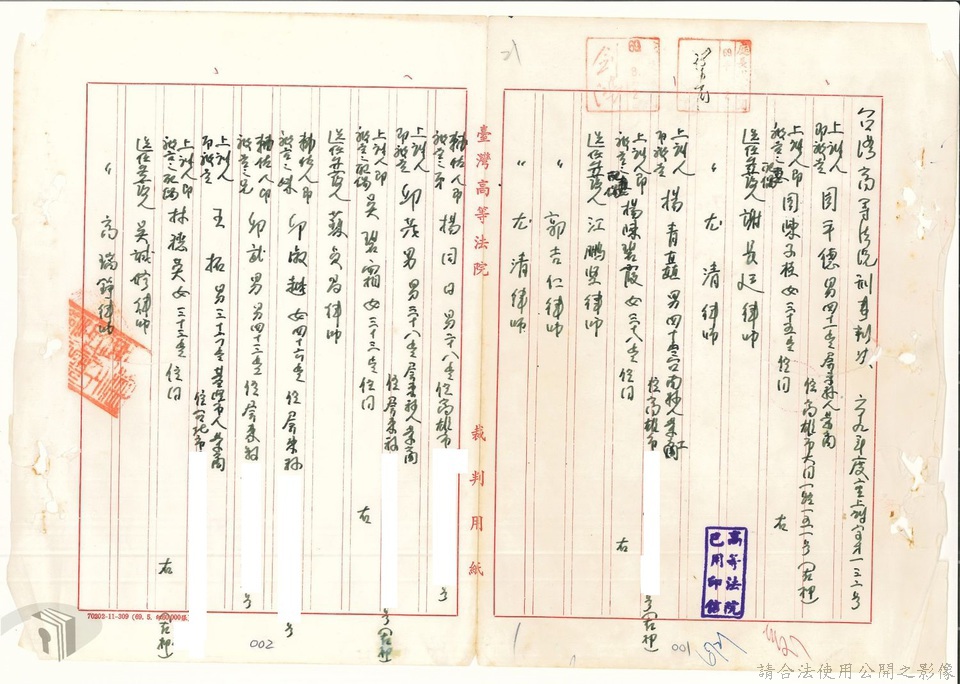 台灣高等法院刑事判決 六九年度
上訴人
即被告 周平德 男 四十 歲 屏東縣人 業商
住高雄市大同一路一五一號(在押)
上訴人即
被告之配偶 周陳子枝 女 三十五歲 住同 右
選任辯護人 謝長廷律師
〃 尤清律師
上訴人
即被告 楊青矗 男 四十 台南縣人 業工
住高雄市 號(在押)
上訴人即
被告之配偶 楊陳碧霞 女 三十八歲 住同 右
選任辯護人 江鵬堅律師
〃 郭吉仁律師
〃 尤清律師
高等法院
已用印信
001
臺灣高等法院 裁判用紙
輔佐人即
被告之弟 楊同日 男 三十八歲 住高雄市 號
上訴人
即被告 邱茂男 男 三十八歲 屏東縣人 業商
住屏東縣 號(在押)
上訴人即
被告之配偶 吳碧霜 女 三十三歲 住同 右
選任辯護人 蘇貞昌律師
輔佐人即
被告之妹 邱 越 女 四十六歲 住屏東縣 號
輔佐人即
被告之兄 邱 男 四十三歲 住屏東縣 號
上訴人
即被告 王拓 男 三十六歲 基隆市人 業商
住台北市 號(在押)
上訴人即
被告之配偶 林穗英 女 三十三歲 住同 右
選任辯護人 吳 律師
〃 高瑞錚律師
70202-11-309
002
請合法使用公開之影像